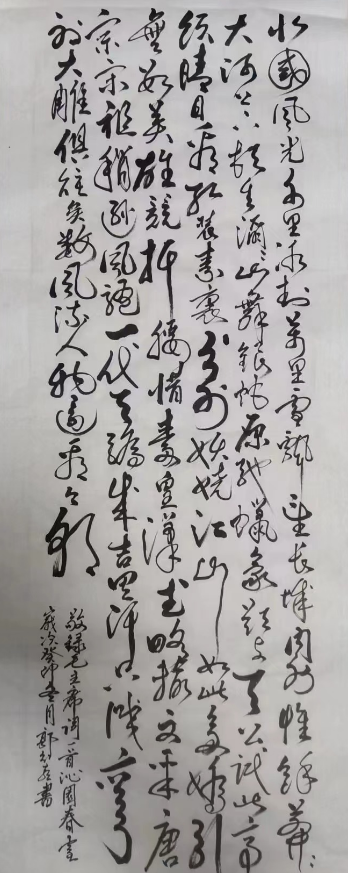 北國風光千里冰封萬里雪飄望長城内外惟餘莽々
大河上下頓失滔々山舞銀蛇原馳蠟象欲与天公試比高
須晴日看红装素裹分外妖嬈江山如此多嬌引
無數英雄競折腰惜秦皇漢武略輸文采唐
宗宋祖稍遜風騷一代天驕成吉思汗只識彎弓
射大雕俱往矣數風流人物還看今朝
敬録毛主席詞一首沁園春雪
歲次癸卯月郭書